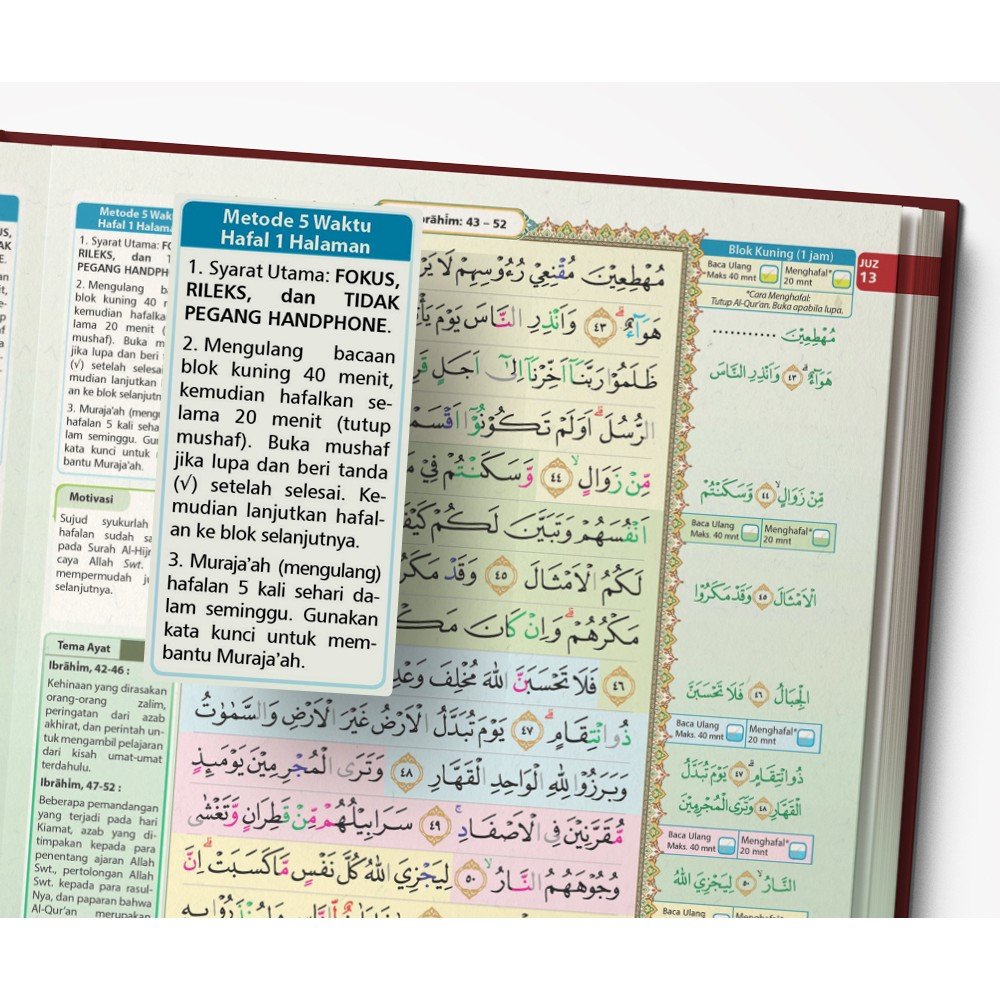 Metode 5 Waktu
Hafal 1 Halaman
1. Syarat Utama: FOKUS,
RILEKS, dan TIDAK
PEGANG HANDPHONE.
2. Mengulang bacaan
blok kuning 40 menit,
kemudian hafalkan se-
lama 20 menit (tutup
mushaf). Buka mushaf
jika lupa dan beri tanda
(√) setelah selesai. Ke-
mudian lanjutkan hafal-
an ke blok selanjutnya.
3. Muraja'ah (mengulang)
hafalan 5 kali sehari da-
lam seminggu. Gunakan
kata kunci untuk mem-
bantu Muraja'ah.
Metode 5 Wak
Hafal 1 Halam
1. Syarat Utama:
RILEKS, dan
PEGANG HANDPH
2. Mengulang
blok kuning 40
kemudian hafalka
lama 20 menit (
mushaf). Buka
jika lupa dan beri
(√) setelah selesai
mudian lanjutkan
an ke blok selanjutn
3. Muraja'ah (meng
hafalan 5 kali seha
lam seminggu. Gun
kata kunci untuk
bantu Muraja'ah.
Motivasi
Sujud syukurlah
hafalan sudah
pada Surah Al-Hijr
caya Allah Swt.
mempermudah
selanjutnya.
Tema Ayat
Ibrāhīm, 42-46 :
Kehinaan yang dirasakan
orang-orang zalim,
peringatan dari azab
akhirat, dan perintah un-
tuk mengambil pelajaran
dari kisah umat-umat
terdahulu.
Ibrāhīm, 47-52 :
Beberapa pemandangan
yang terjadi pada hari
Kiamat, azab yang di-
timpakan kepada para
penentang ajaran Allah
Swt., pertolongan Allah
Swt. kepada para rasul-
Nya, dan paparan bahwa
Al-Qur'an merupakan
brāhīm: 43 – 52
مُهْطِعِيْنَ مُقْنِعِيْ رُءُوْسِهِمْ لَا يَرْ
هَوَاۤءٌۗ ٤٣ وَاَنْذِرِ النَّاسَ يَوْمَ يَأْتِ
ظَلَمُوْا رَبَّنَآ اَخِّرْنَآ اِلٰٓى اَجَلٍ قَرِ
الرُّسُلَۗ اَوَلَمْ تَكُوْنُوْٓا اَقْسَمْ
مِّنْ زَوَالٍۙ ٤٤ وَّسَكَنْتُمْ فِيْ مَ
اَنْفُسَهُمْ وَتَبَيَّنَ لَكُمْ كَيْفَ
لَكُمُ الْاَمْثَالَ ٤٥ وَقَدْ مَكَرُ
مَكْرُهُمْۗ وَاِنْ كَانَ مَكْ
٤٦ فَلَا تَحْسَبَنَّ اللّٰهَ مُخْلِفَ وَعْدِ
ذُو انْتِقَامٍۗ ٤٧ يَوْمَ تُبَدَّلُ الْاَرْضُ غَيْرَ الْاَرْضِ وَالسَّمٰوٰتُ
وَبَرَزُوْا لِلّٰهِ الْوَاحِدِ الْقَهَّارِ ٤٨ وَتَرَى الْمُجْرِمِيْنَ يَوْمَىِٕذٍ
مُّقَرَّنِيْنَ فِى الْاَصْفَادِۚ ٤٩ سَرَابِيْلُهُمْ مِّنْ قَطِرَانٍ وَّتَغْشٰى
وُجُوْهَهُمُ النَّارُۙ ٥٠ لِيَجْزِيَ اللّٰهُ كُلَّ نَفْسٍ مَّا كَسَبَتْۗ اِنَّ
Blok Kuning (1 Jam)
Baca Ulang
Maks 40 mnt
Menghafal*
20 mnt
*Cara Menghafal:
Tutup Al-Qur'an. Buka apabila lupa.
JUZ
13
مُهْطِعِيْنَ ...........
هَوَاۤءٌۗ ٤٣ وَاَنْذِرِ النَّاسَ
مِّنْ زَوَالٍۙ ٤٤ وَّسَكَنْتُمْ
Baca Ulang
Maks. 40 mnt
Menghafal*
20 mnt
الْاَمْثَالَ ٤٥ وَقَدْ مَكَرُوْا
الْجِبَالُ ٤٦ فَلَا تَحْسَبَنَّ
Baca Ulang
Maks. 40 mnt
Menghafal*
20 mnt
ذُو انْتِقَامٍۗ ٤٧ يَوْمَ تُبَدَّلُ
الْقَهَّارِ ٤٨ وَتَرَى الْمُجْرِمِيْنَ
Baca Ulang
Maks. 40 mnt
Menghafal*
20 mnt
النَّارُۙ ٥٠ لِيَجْزِيَ اللّٰهُ
Baca Ulang
Menghafal*